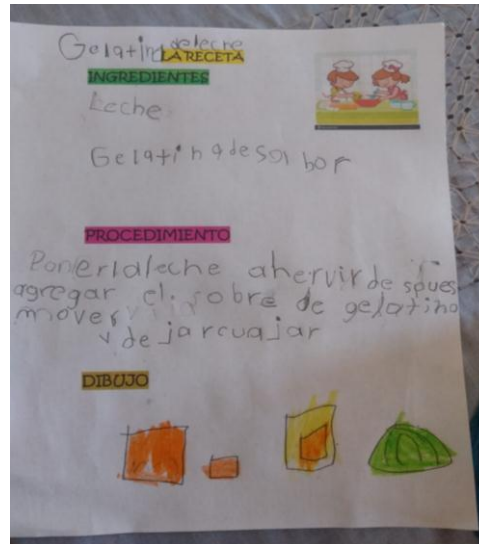 Gelatina de leche
LA RECETA
INGREDIENTES
Leche
Gelatina de sorbor
PROCEDIMIENTO
Poner la leche a hervir de spues
agregar el sobre de gelatina
mover
y dejar cuajar
DIBUJO